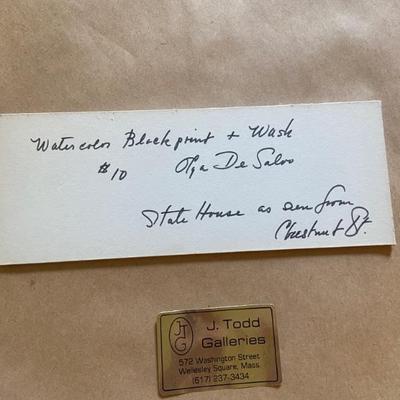 Watercolor Blockprint + Wash
#10 Olga De Salvo
State House as seen from
Chestnut St.
JTG
J. Todd
Galleries
572 Washington Street
Wellesley Square, Mass.
(617) 237-3434